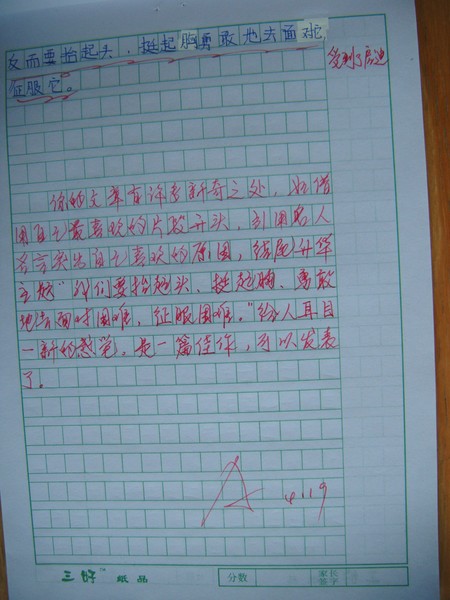 反而要抬起头，挺起胸勇敢地去面对
征服它。
受到了启迪
你的文章有许多新奇之处，如借
用自己最喜欢的片段开头，引用名人
名言突出自己喜欢的原因，结尾升华
主题“我们要抬起头、挺起胸、勇敢
地去面对困难，征服困难。”给人耳目
一新的感觉。是一篇佳作，可以发表
了。
A 4.19
三好 纸品 分数 家长
签字